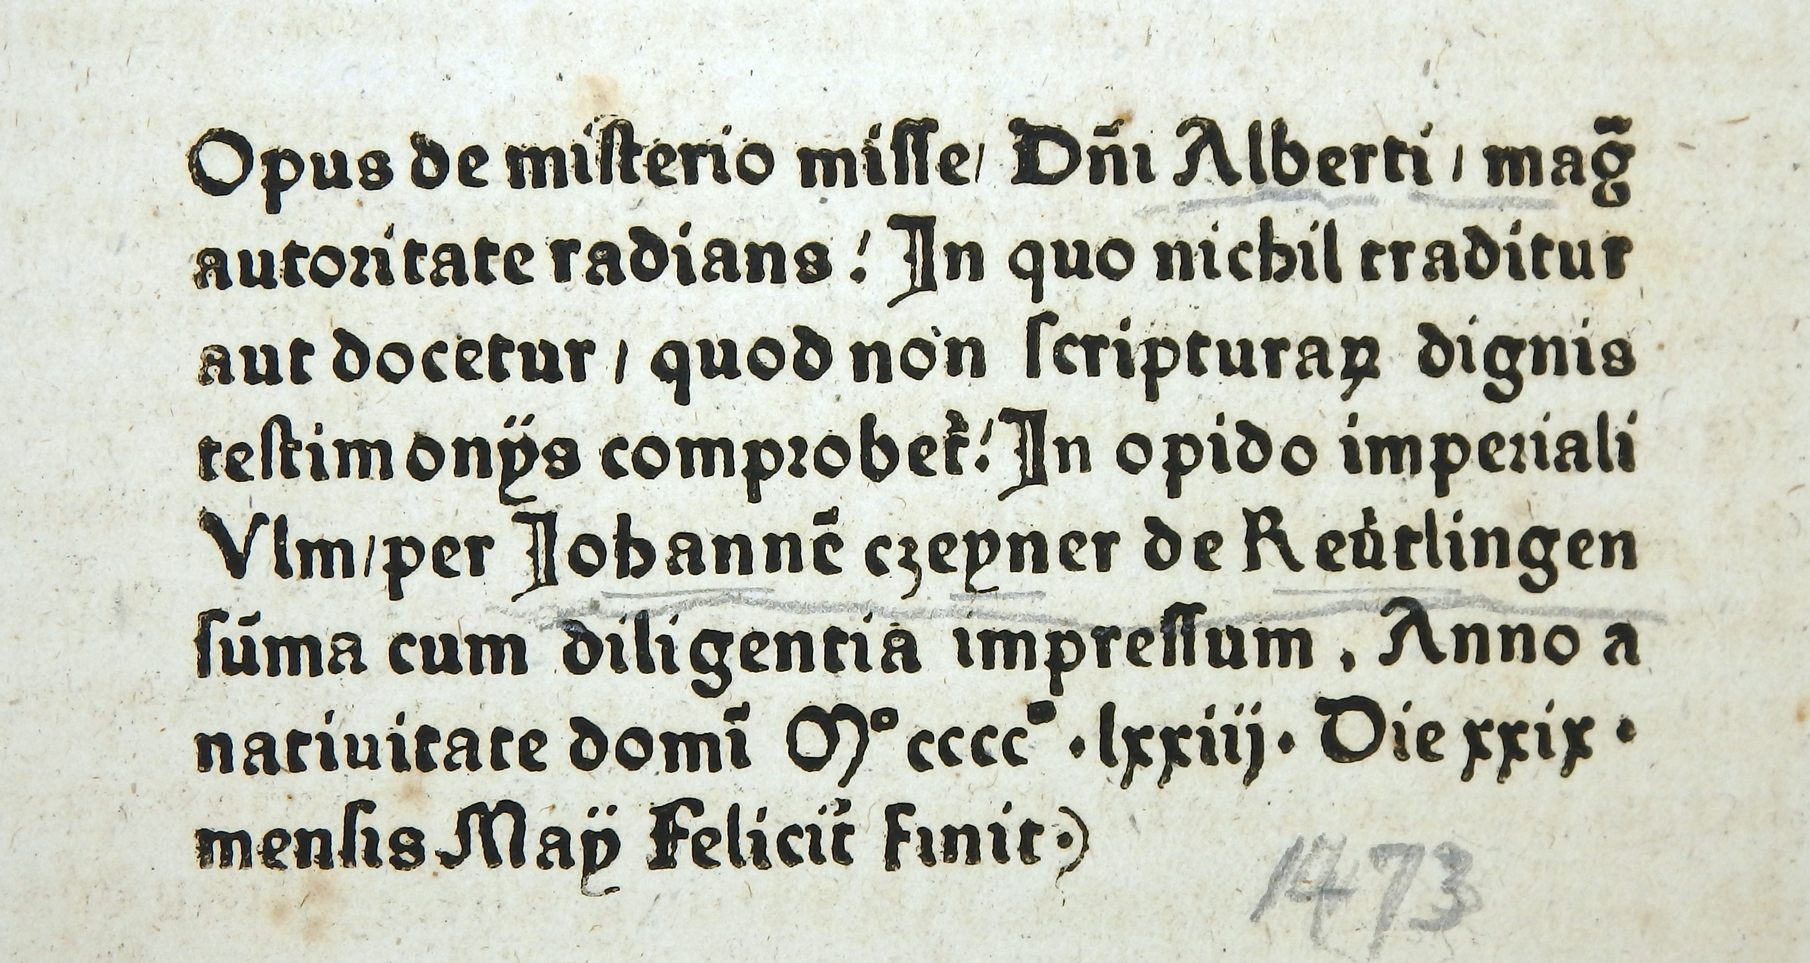 Opus de misterio misse/ Dn̄i Alberti / maḡ
autoritate radians! In quo nichil traditur
aut docetur / quod non scripturaꝝ dignis
testimonÿs comprobet᷑! In opido imperiali
Vlm/per Johannē czeyner de Reu̇tlingen
sūma cum diligentia impressum . Anno a
natiuitate domī Mº ccccº · lxxiij · Die xxix ·
mensis Maÿ Felicit᷑ finit·)
1473